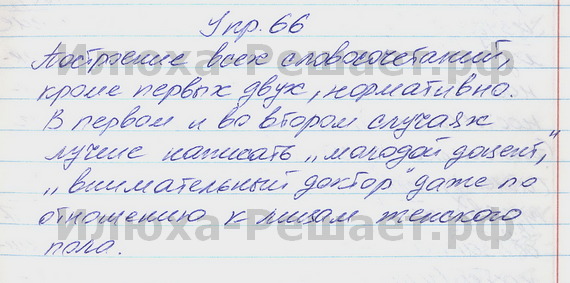 Упр. 66
Построение всех словосочетаний,
кроме первых двух, нормативно.
В первом и во втором случаях
лучше написать „молодой доцент,"
„внимательный доктор" даже по
отношению к лицам женского
пола.
Илюха-Решает.рф
Илюха-Решает.рф
Илюха-Решает.рф